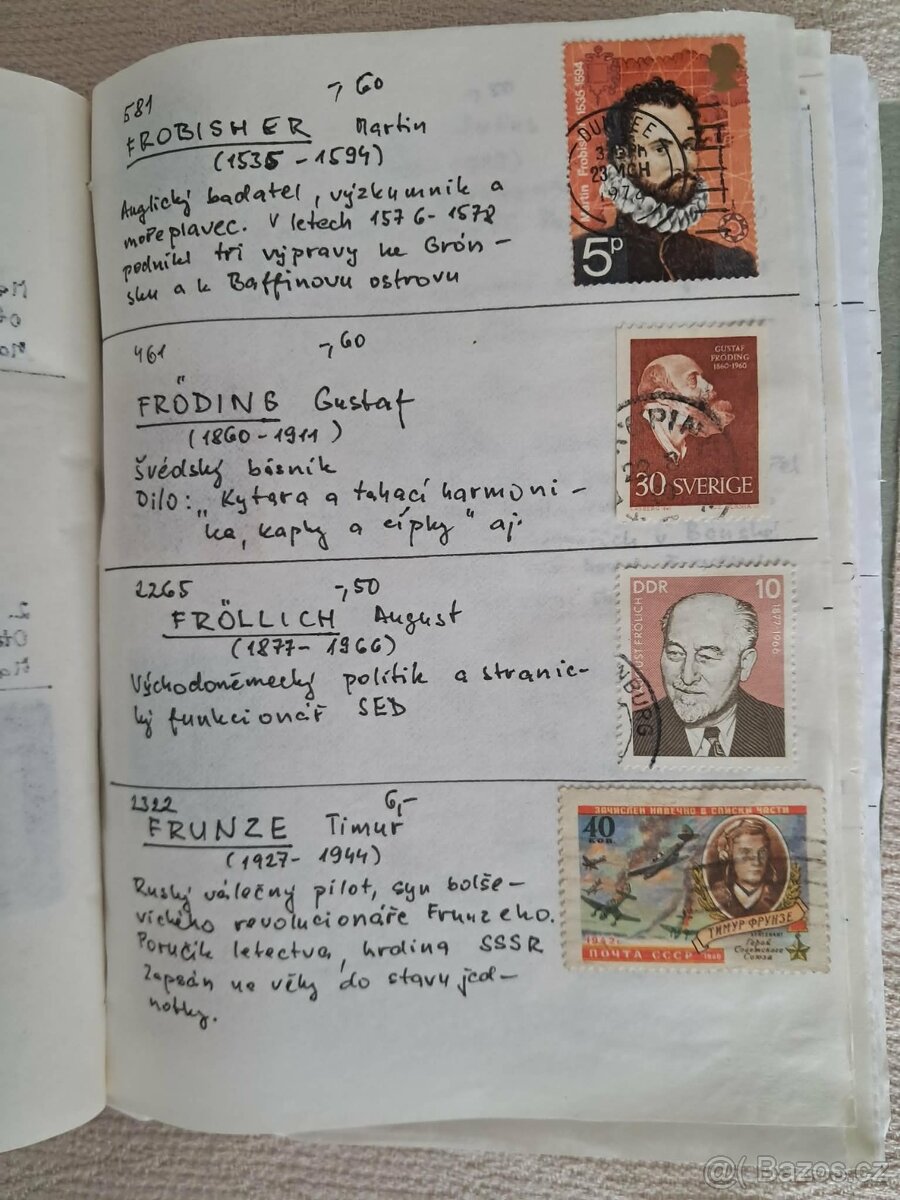 581
-,60
FROBISHER Martin
(1535 - 1594)
Anglický badatel, výzkumník a
mořeplavec. V letech 1576-1578
podnikl tři výpravy ke Grón-
sku a k Baffinovu ostrovu
Martin Frobisher 1535-1594
DUNDEE
23 MCH
5P
461
-,60
FRÖDING Gustaf
(1860-1911)
Švédský básník
Dílo: "Kytara a tahací harmoni-
ka, kapky a cípky" aj.
GUSTAF
FRÖDING
1860-1960
30 SVERIGE
2265
-,50
FRÖLLICH August
(1877-1966)
Východoněmecký politik a stranic-
ký funkcionář SED
DDR
10
AUGUST FRÖLICH
1877-1966
NBURG
2322
6,-
FRUNZE Timur
(1927- 1944)
Ruský válečný pilot, syn bolše-
vického revolucionáře Frunzeho.
Poručík letectva, hrdina SSSR
Zapsán na věky do stavu jed-
notky.
ЗАЧИСЛЕН НАВЕЧНО В СПИСКИ ЧАСТИ
40
КОП.
ТИМУР ФРУНЗЕ
Герой
Советского
Союза
1942г.
ПОЧТА СССР 1960
@( Bazos.cz